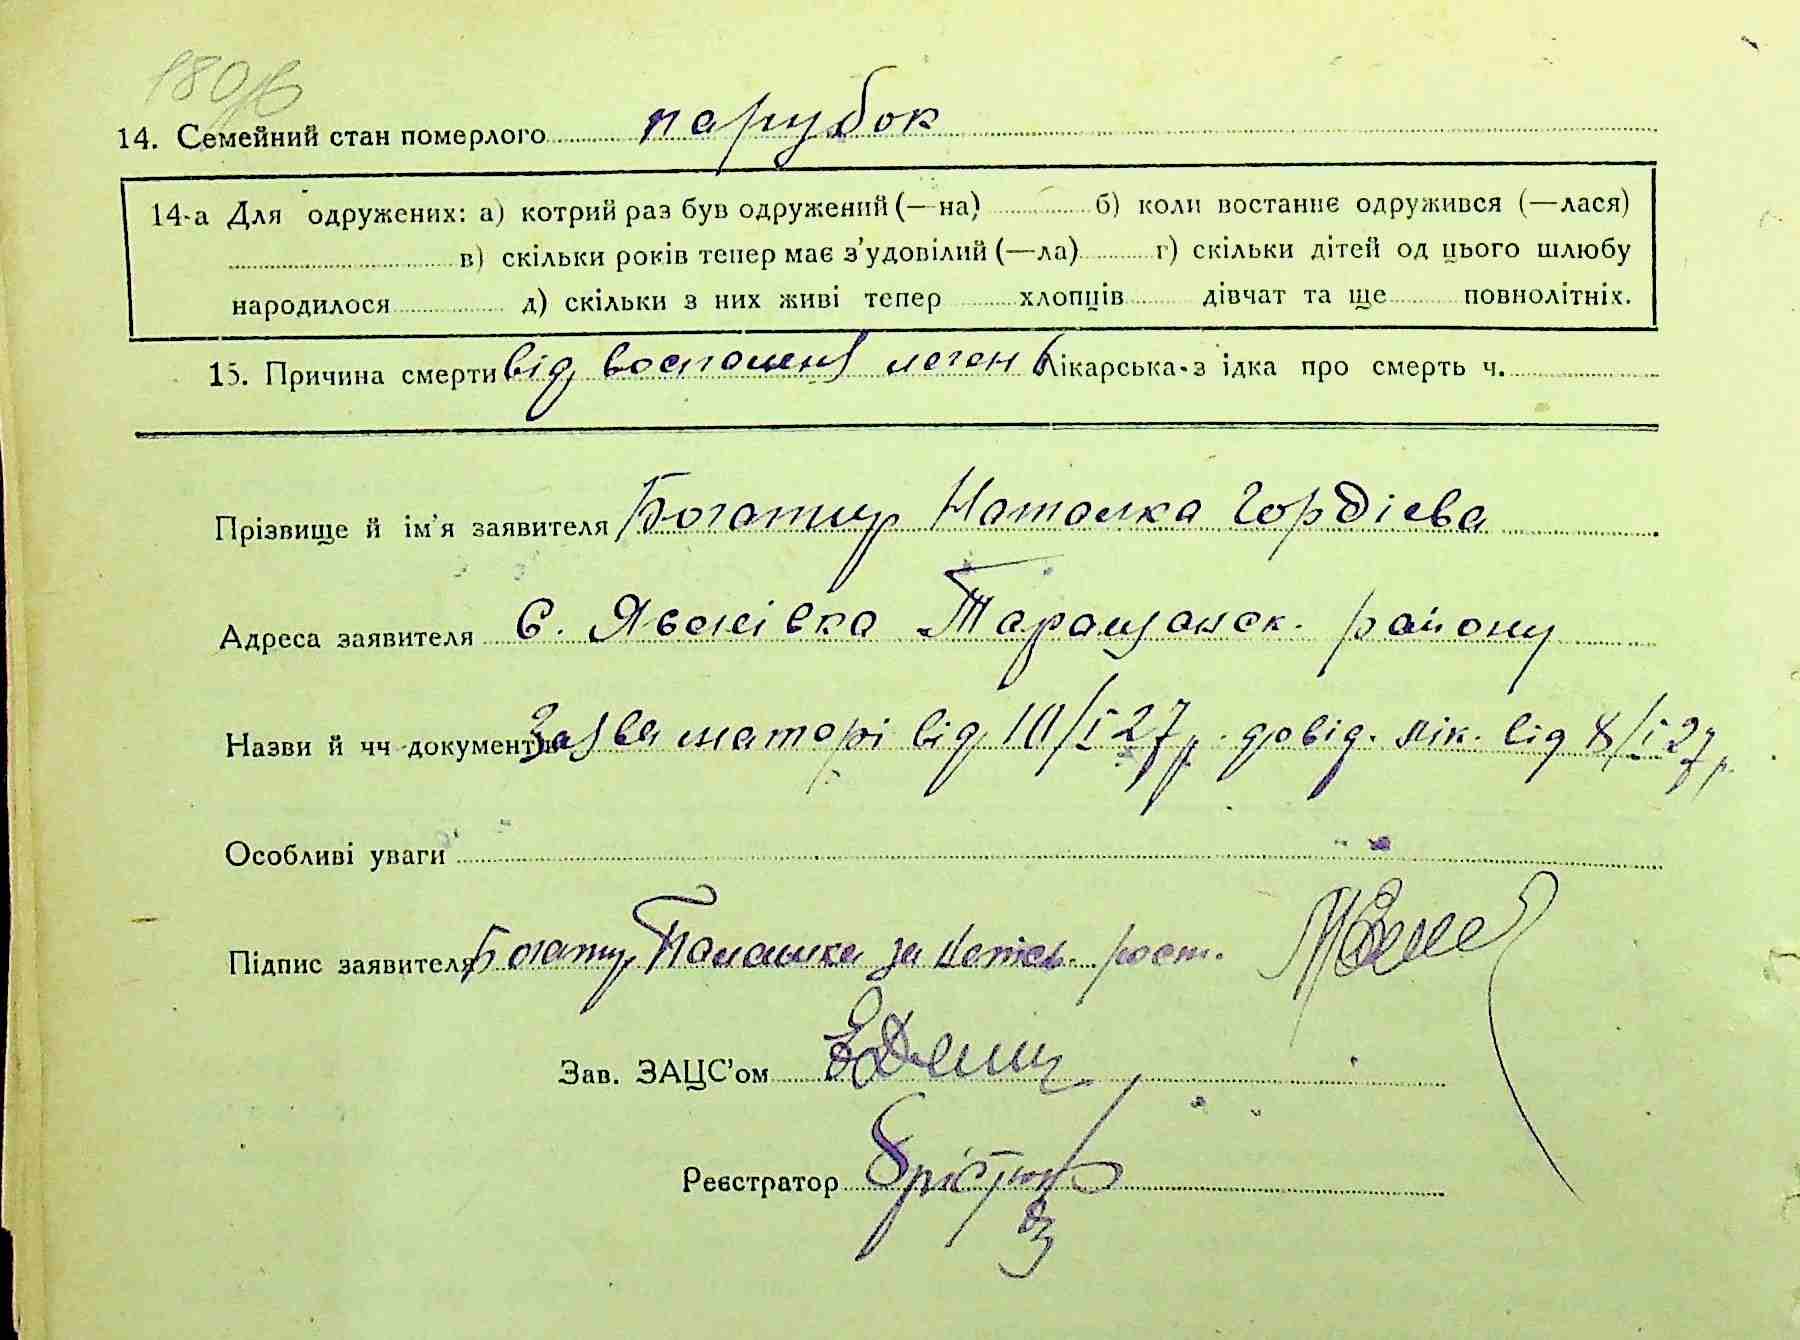 180
14. Семейний стан померлого парубок
14-а Для одружених: а) котрий раз був одружений (—на) б) коли востаннє одружився (—лася)
в) скільки років тепер має з'удовілий (—ла) г) скільки дітей од цього шлюбу
народилося д) скільки з них живі тепер хлопців дівчат та ще повнолітніх.
15. Причина смерти від воспаленя леген Лікарська з ідка про смерть ч.
Прізвище й ім'я заявителя Богатир Наталка Гордієва
Адреса заявителя С. Явонівка Таращанск. району
Назви й чч документів Заява маторі від 10/I 27 р. довід. лік. від 8/I 27 р.
Особливі уваги
Підпис заявителя Богатир за рост.
Зав. ЗАЦС'ом
Реєстратор